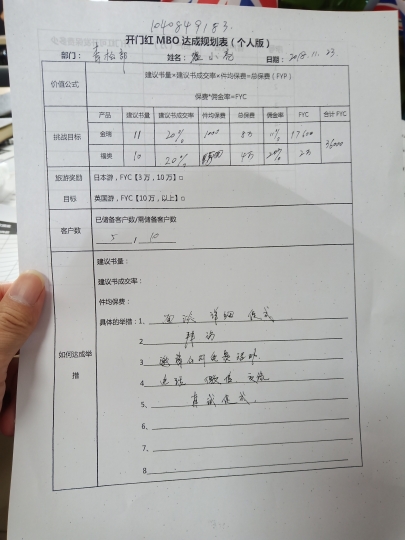 1040849183.
开门红 MBO 达成规划表（个人版）
部门： 姓名： 小 日期：2018.11.23
价值公式
建议书量×建议书成交率×件均保费=总保费（FYP）
保费*佣金率=FYC
挑战目标
产品 建议书量 建议书成交率 件均保费 总保费 佣金率 FYC 合计 FYC
金瑞 11 20% 8万 17600 36000
福英 10 20% 4万 2万
旅游奖励
目标
日本游，FYC【3万，10万】□
英国游，FYC【10万，以上】□
客户数
已储备客户数/需储备客户数
5 / 10
如何达成举措
建议书量：
建议书成交率：
件均保费：
具体的举措：1、 面谈 详细
2、 拜访
3、
4、 电话 微信 交流
5、
6、
7、
8、